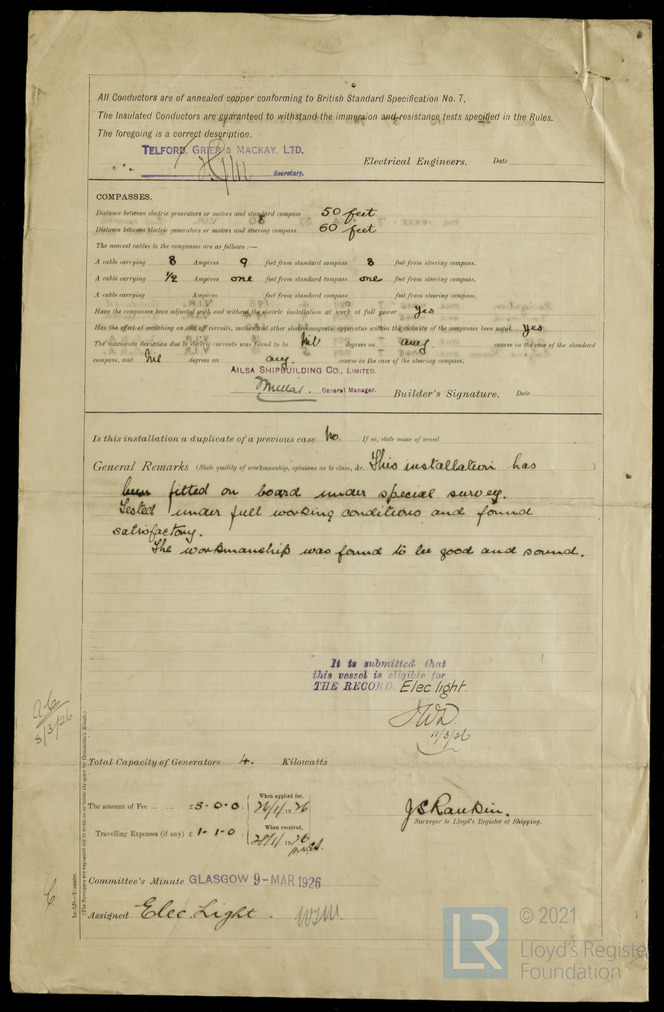 All Conductors are of annealed copper conforming to British Standard Specification No. 7.
The Insulated Conductors are guaranteed to withstand the immersion and resistance tests specified in the Rules.
The foregoing is a correct description.
TELFORD, GRIER & MACKAY, LTD.
Electrical Engineers. Date
Secretary.
COMPASSES.
Distance between electric generators or motors and standard compass 50 feet
Distance between electric generators or motors and steering compass 60 feet
The nearest cables to the compasses are as follows :—
A cable carrying 8 Ampères 9 feet from standard compass 8 feet from steering compass.
A cable carrying ½ Ampères one feet from standard compass one feet from steering compass.
A cable carrying Ampères feet from standard compass feet from steering compass.
Have the compasses been adjusted with and without the electric installation at work at full power yes
Has the effect of switching on and off circuits, motors and other electromagnetic apparatus within the vicinity of the compasses been noted yes
The maximum deviation due to electric currents was found to be Nil degrees on any course in the case of the standard
compass, and Nil degrees on any course in the case of the steering compass.
AILSA SHIPBUILDING CO., LIMITED.
Millar. General Manager. Builder's Signature. Date
Is this installation a duplicate of a previous case No. If so, state name of vessel
General Remarks (State quality of workmanship, opinions as to class, &c. This installation has )
been fitted on board under special survey.
Tested under full working conditions and found
satisfactory.
The workmanship was found to be good and sound.
It is submitted that
this vessel is eligible for
THE RECORD. Elec light.
JWD.
11/3/26
8/3/26
Total Capacity of Generators 4. Kilowatts
The amount of Fee ... ... £5.0.0 : When applied for, 26/1/1926
Travelling Expenses (if any) £1.1.0 : When received, 28/1/1926
J S Rankin.
Surveyor to Lloyd's Register of Shipping.
Committee's Minute GLASGOW 9-MAR 1926
Assigned Elec. Light.
(The Surveyors are requested not to write on or below the space for Committee's Minute.)
© 2021
LR Lloyd's Register
Foundation